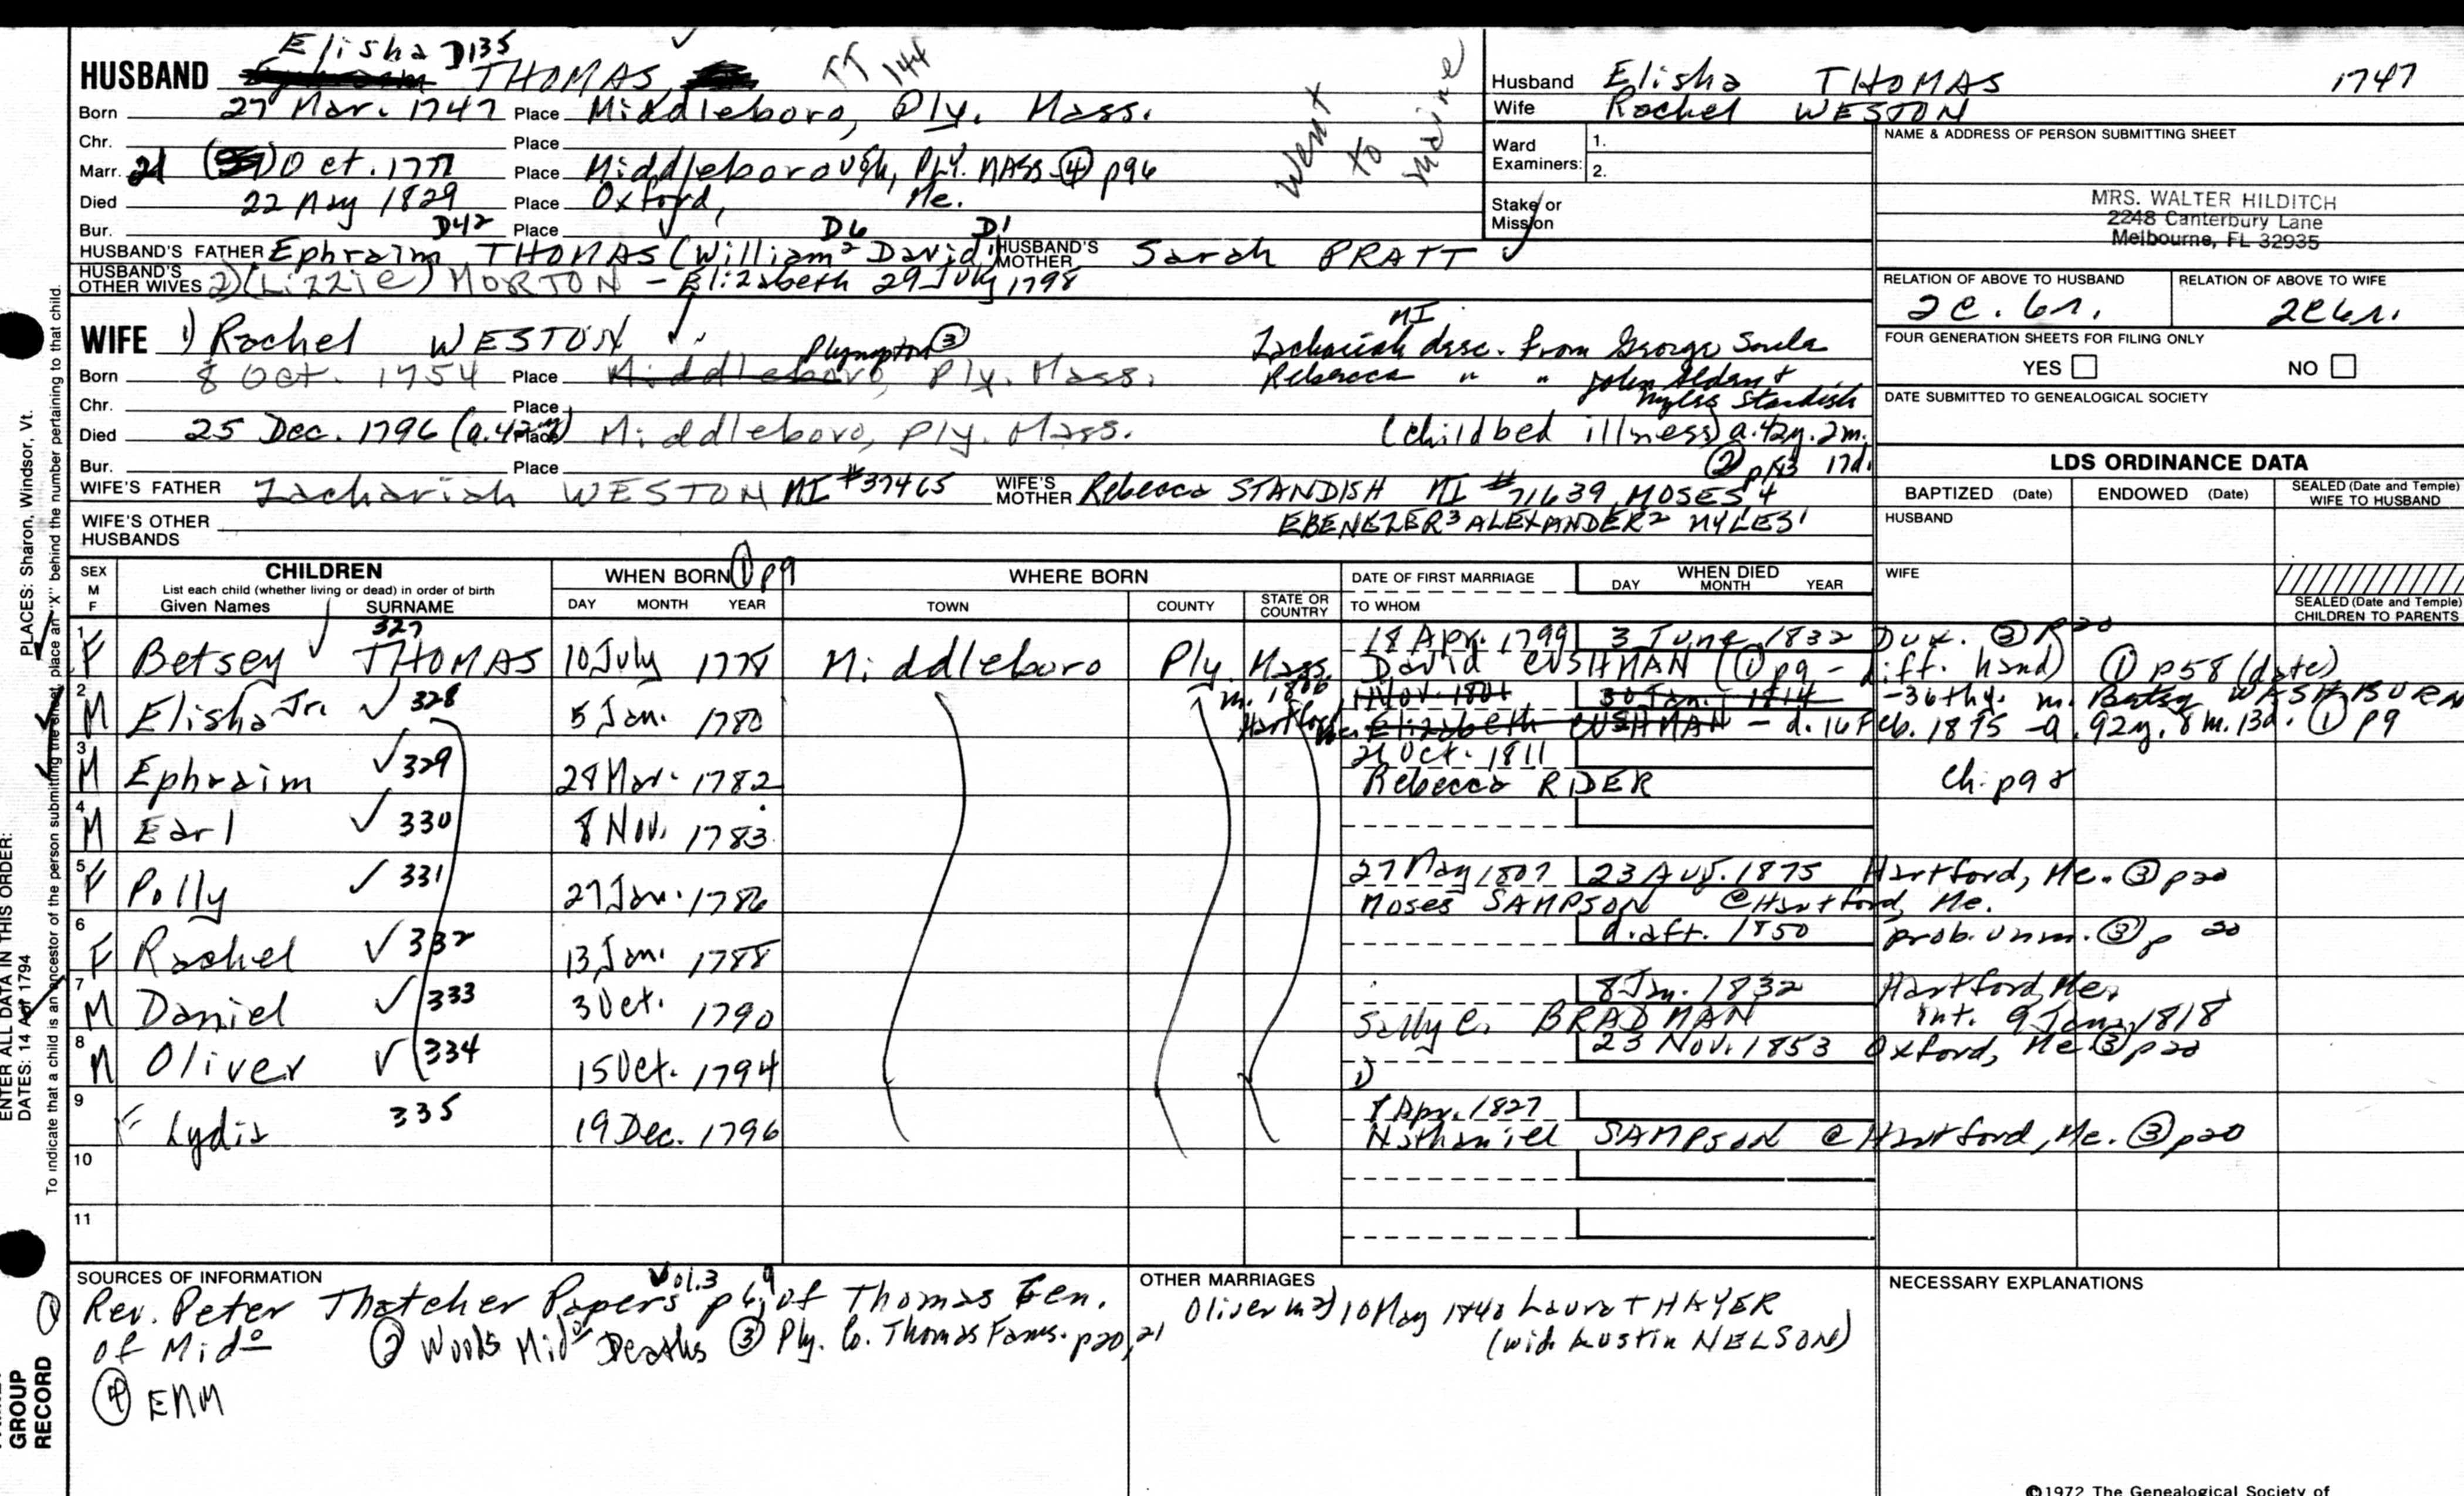 Elisha D135
HUSBAND THOMAS
TT 144
Went to Maine
Born 27 Mar. 1747 Place Middleboro, Ply. Mass.
Chr. Place
Marr. 21 Oct. 1777 Place Middleborough, PLY. MASS ④ p96
Died 22 Aug 1829 Place Oxford, Me.
Bur. Place
D42 D6 D1
HUSBAND'S FATHER Ephraim THOMAS (William² David¹ HUSBAND'S MOTHER Sarah PRATT ✓
HUSBAND'S OTHER WIVES 2) (Lizzie) MORTON - Elizabeth 29 July 1798
Husband Elisha THOMAS 1747
Wife Rachel WESTON
Ward Examiners: 1.
2.
Stake or Mission
NAME & ADDRESS OF PERSON SUBMITTING SHEET
MRS. WALTER HILDITCH
2248 Canterbury Lane
Melbourne, FL 32935
RELATION OF ABOVE TO HUSBAND 2c. 6r.
RELATION OF ABOVE TO WIFE 2c6r.
FOUR GENERATION SHEETS FOR FILING ONLY
YES NO
DATE SUBMITTED TO GENEALOGICAL SOCIETY
WIFE 1) Rachel WESTON
Plympton ③
Born 8 Oct. 1754 Place Middleboro, Ply. Mass.
Chr. Place
Died 25 Dec. 1796 Place Middleboro, Ply. Mass.
Bur. Place
MI
Zachariah desc. from George Soule
Rebecca " " John Alden &
Myles Standish
(childbed illness) a. 42y. 2m.
② p183 17d.
WIFE'S FATHER Zachariah WESTON MI #37465 WIFE'S MOTHER Rebecca STANDISH MI #71639 MOSES⁴
EBENEZER³ ALEXANDER² MYLES¹
WIFE'S OTHER HUSBANDS
LDS ORDINANCE DATA
BAPTIZED (Date) ENDOWED (Date) SEALED (Date and Temple) WIFE TO HUSBAND
HUSBAND
WIFE
SEALED (Date and Temple) CHILDREN TO PARENTS
SEX M F
CHILDREN
List each child (whether living or dead) in order of birth
Given Names SURNAME
WHEN BORN ① p9
DAY MONTH YEAR
WHERE BORN
TOWN COUNTY STATE OR COUNTRY
DATE OF FIRST MARRIAGE
TO WHOM
WHEN DIED
DAY MONTH YEAR
327 18 Apr. 1799 3 June 1832 Dux. ③ p20
1 F Betsey ✓ THOMAS 10 July 1778 Middleboro Ply. Mass. David CUSHMAN (① p9 - diff. hand) ① p58 (date)
m. 1806 1 Nov. 1801 30 Jan. 1814 -36thy. m. Betsy WASHBURN
2 M Elisha Jr. ✓ 328 5 Jan. 1780 Hartford, Me. Elizabeth CUSHMAN - d. 16 Feb. 1875 - a. 92y. 8m. 13d. ① p9
21 Oct. 1811
3 M Ephraim ✓ 329 28 Mar. 1782 Rebecca RIDER Ch. p98
4 M Earl ✓ 330 8 Nov. 1783
27 May 1807 23 Aug. 1875 Hartford, Me. ③ p20
5 F Polly ✓ 331 27 Jan. 1786 Moses SAMPSON @ Hartford, Me.
d. aft. 1850 prob. unm. ③ p 20
6 F Rachel ✓ 332 13 Jan. 1788
8 Jan. 1832 Hartford, Me.
7 M Daniel ✓ 333 3 Oct. 1790 Sally C. BRADMAN int. 9 Jan. 1818
23 Nov. 1853 Oxford, Me ③ p20
8 M Oliver ✓ 334 15 Oct. 1794 1)
8 Apr. 1827
9 F Lydia 335 19 Dec. 1796 Nathaniel SAMPSON @ Hartford, Me. ③ p20
10
11
SOURCES OF INFORMATION
① Rev. Peter Thatcher Papers Vol. 3 p 6, 9 of Thomas Gen.
of Mido ② Wood's Mido Deaths ③ Ply. Co. Thomas Fams. p20, 21
④ ENM
OTHER MARRIAGES
Oliver m 2) 10 May 1840 Laura THAYER
(wid. Austin NELSON)
NECESSARY EXPLANATIONS
©1972 The Genealogical Society of
PLACES: Sharon, Windsor, Vt.
To indicate that a child is an ancestor of the person submitting the sheet, place an "X" behind the number pertaining to that child.
ENTER ALL DATA IN THIS ORDER:
DATES: 14 Apr 1794
GROUP
RECORD